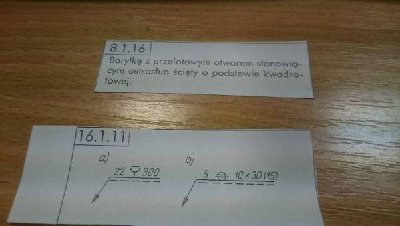 8.1.16
Baryłkę z przelotowym otworem stanowią-
cym ostrosłup ścięty o podstawie kwadra-
towej.
16.1.11
a)
b)
22 300
5 10×30(15)